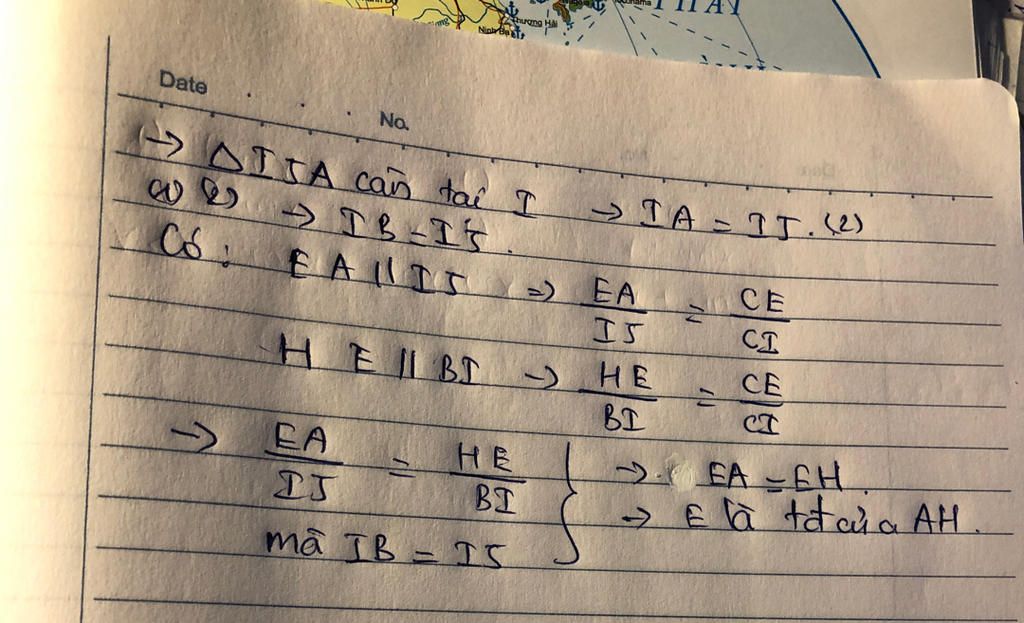 Thượng Hải
Ninh Ba
Date
No.
→ △IJA cân tại I → IA = IJ. (2)
(1) (2) → IB = IJ.
Có: EA // IJ ⇒ EA/IJ = CE/CI
HE // BI → HE/BI = CE/CI
→ EA/IJ = HE/BI } → EA = EH.
mà IB = IJ → E là tđ của AH.